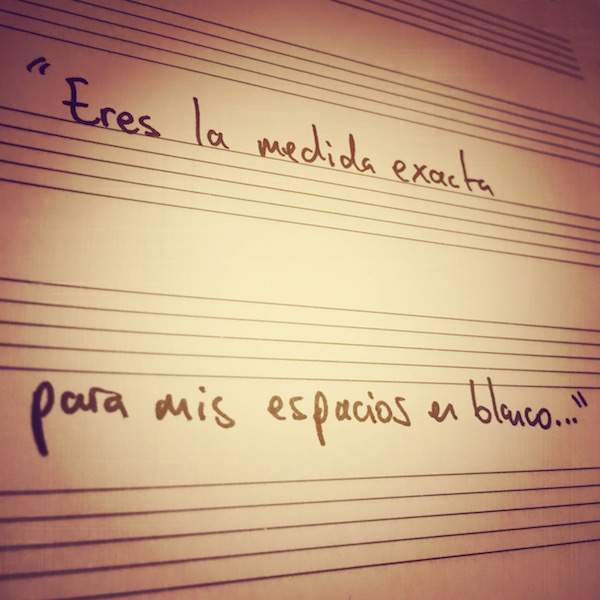 "Eres la medida exacta
para mis espacios en blanco..."